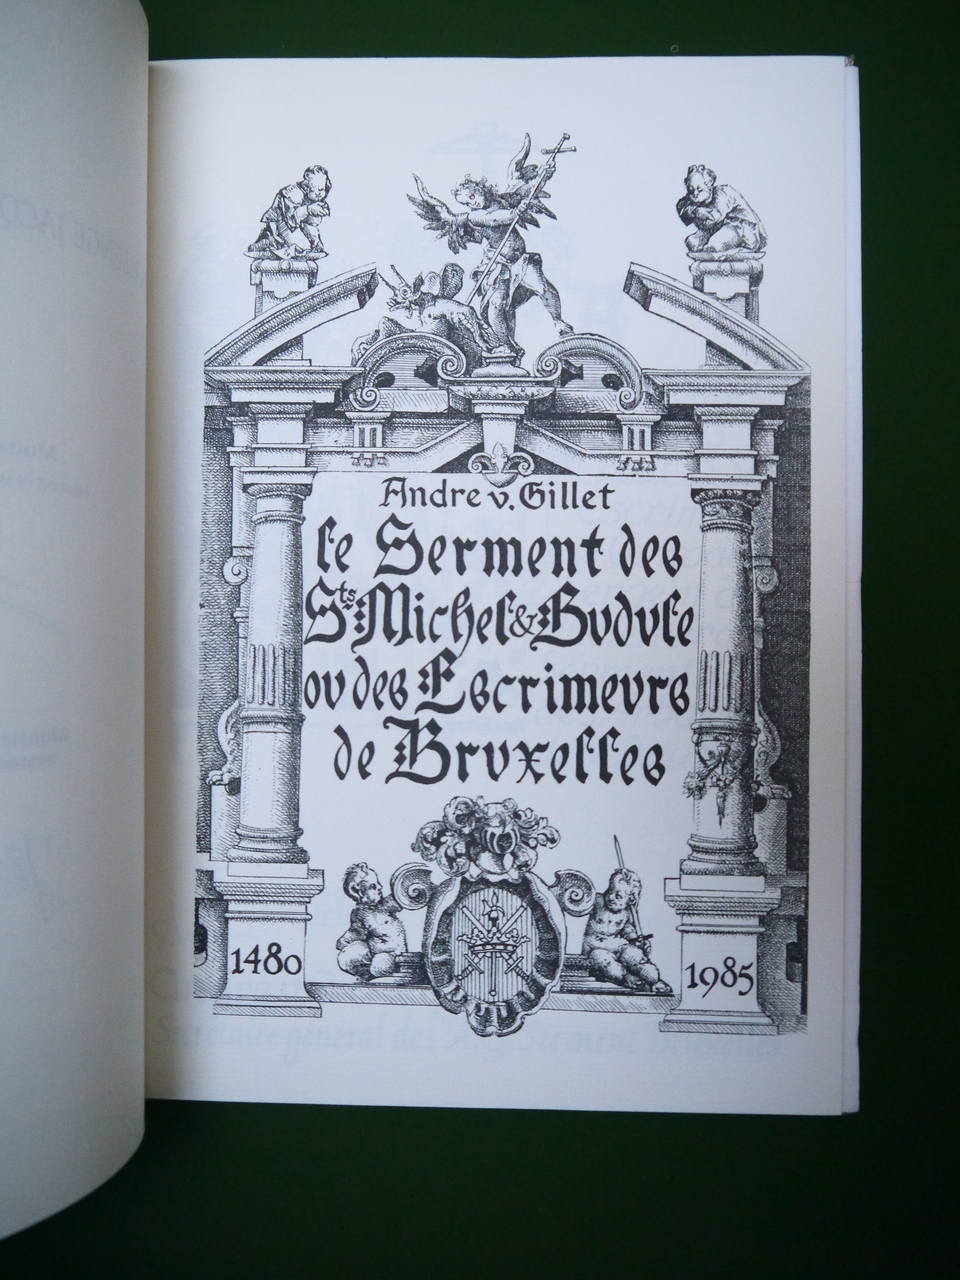 Andre v. Gillet
le Serment des
Sts Michel & Gudule
ov des Escrimevrs
de Brvxelles
1480
1985